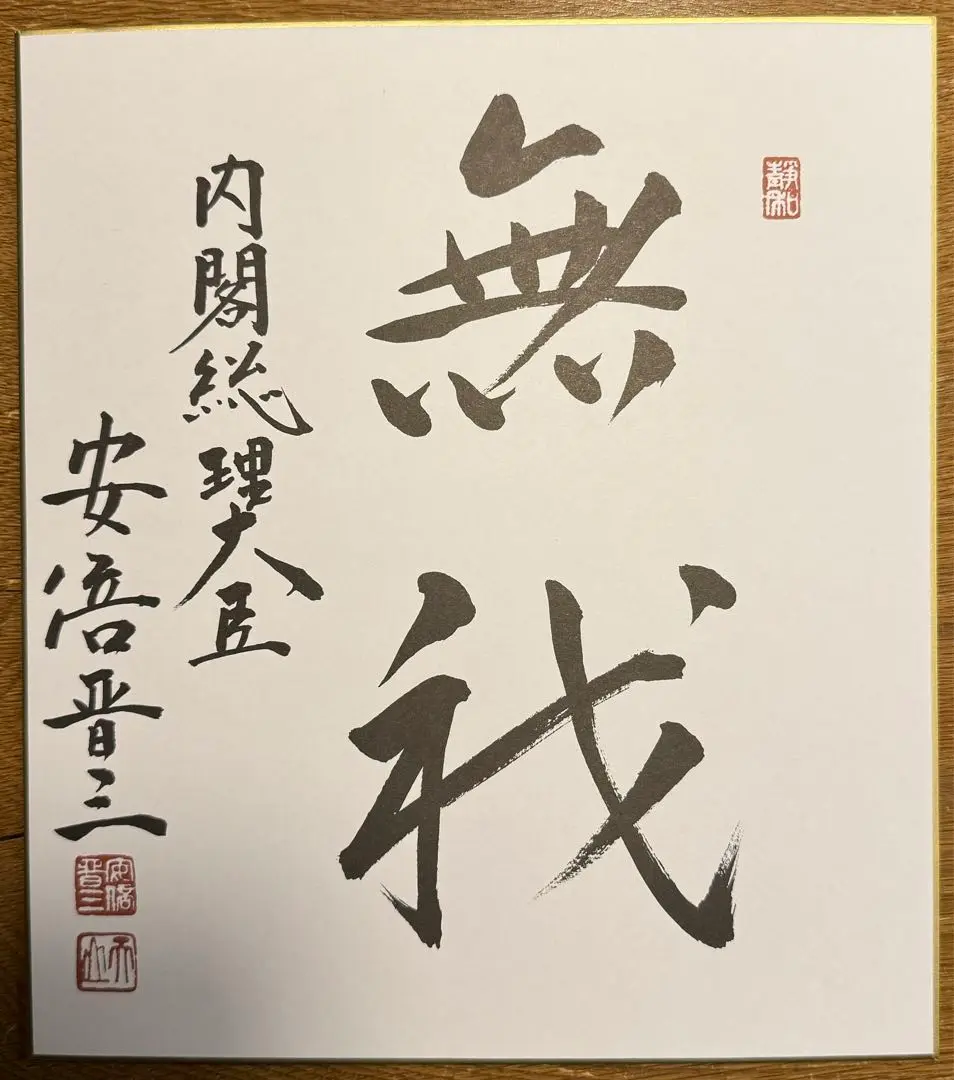 靜和
無我
内閣総理大臣
安倍晋三
安倍晋三